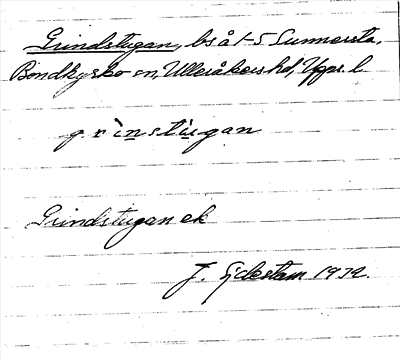 Grindstugan, bs å 1-5 Sunnersta,
Bondkyrko sn, Ulleråkers hd, Upps. l.
grìnstùgan
Grindstugan ek
J. 1932.